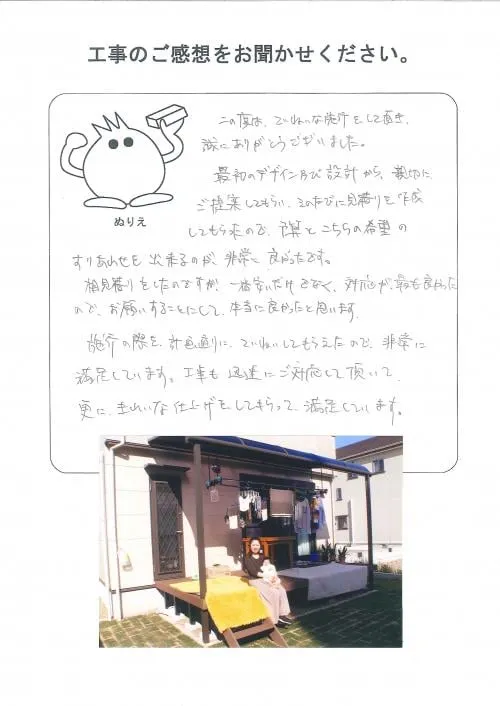 工事のご感想をお聞かせください。
この度は、ていねいな施行をして頂き、
誠にありがとうございました。
最初のデザイン及び設計から、親切に
ご提案してもらい、そのたびに見積りを作成
してもらえたので、予算とこちらの希望の
ぬりえ
すりあわせを出来るのが、非常に良かったです。
相見積りをしたのですが、一番安いだけでなく、対応が、最も良かった
ので、お願いすることにして、本当に良かったと思います。
施行の際も、計画通りに、ていねいしてもらえたので、非常に
満足しています。工事も迅速にご対応して頂いて、
更に、きれいな仕上げをしてもらって、満足しています。